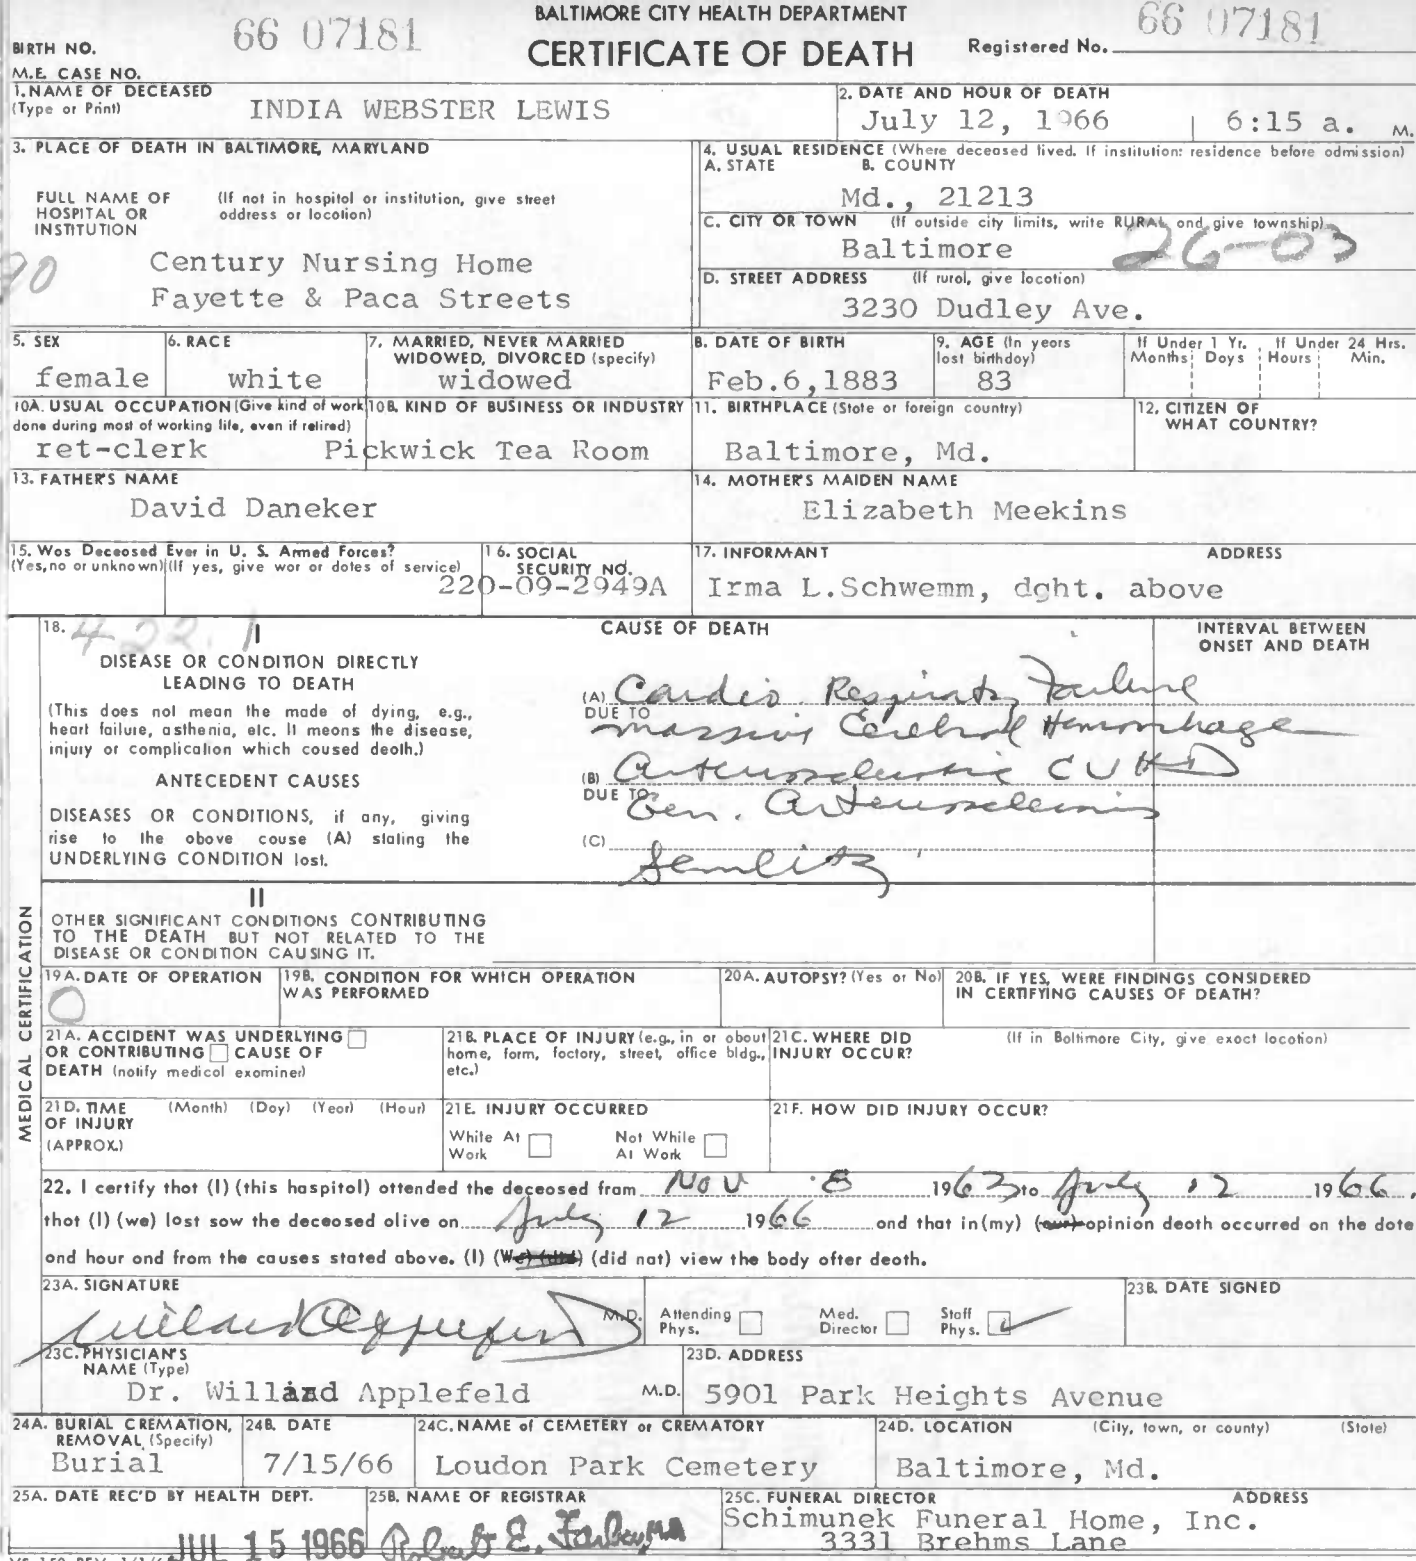 BALTIMORE CITY HEALTH DEPARTMENT
66 07181
66 07181
BIRTH NO.
CERTIFICATE OF DEATH
Registered No.
M.E. CASE NO.
1. NAME OF DECEASED
(Type or Print)
INDIA WEBSTER LEWIS
2. DATE AND HOUR OF DEATH
July 12, 1966 6:15 a. M.
3. PLACE OF DEATH IN BALTIMORE, MARYLAND
FULL NAME OF HOSPITAL OR INSTITUTION
(If not in hospital or institution, give street address or location)
90
Century Nursing Home
Fayette & Paca Streets
4. USUAL RESIDENCE (Where deceased lived. If institution: residence before admission)
A. STATE B. COUNTY
Md., 21213
C. CITY OR TOWN (If outside city limits, write RURAL and give township)
Baltimore 26-03
D. STREET ADDRESS (If rural, give location)
3230 Dudley Ave.
5. SEX
female
6. RACE
white
7. MARRIED, NEVER MARRIED
WIDOWED, DIVORCED (specify)
widowed
8. DATE OF BIRTH
Feb.6,1883
9. AGE (In years
last birthday)
83
If Under 1 Yr.
Months Days
If Under 24 Hrs.
Hours Min.
10A. USUAL OCCUPATION (Give kind of work
done during most of working life, even if retired)
ret-clerk
10B. KIND OF BUSINESS OR INDUSTRY
Pickwick Tea Room
11. BIRTHPLACE (State or foreign country)
Baltimore, Md.
12. CITIZEN OF
WHAT COUNTRY?
13. FATHER'S NAME
David Daneker
14. MOTHER'S MAIDEN NAME
Elizabeth Meekins
15. Was Deceased Ever in U. S. Armed Forces?
(Yes, no or unknown) (If yes, give war or dates of service)
16. SOCIAL
SECURITY NO.
220-09-2949A
17. INFORMANT ADDRESS
Irma L.Schwemm, dght. above
18. 422.1
I
DISEASE OR CONDITION DIRECTLY
LEADING TO DEATH
(This does not mean the mode of dying, e.g.,
heart failure, asthenia, etc. It means the disease,
injury or complication which caused death.)
ANTECEDENT CAUSES
DISEASES OR CONDITIONS, if any, giving
rise to the above cause (A) stating the
UNDERLYING CONDITION last.
CAUSE OF DEATH
INTERVAL BETWEEN
ONSET AND DEATH
(A) Cardio Respiratory Failure
DUE TO
massive Cerebral Hemorrhage
(B) Arteriosclerotic CVHD
DUE TO
Gen. Arteriosclerosis
(C)
Senility
II
OTHER SIGNIFICANT CONDITIONS CONTRIBUTING
TO THE DEATH BUT NOT RELATED TO THE
DISEASE OR CONDITION CAUSING IT.
MEDICAL CERTIFICATION
19A. DATE OF OPERATION
0
19B. CONDITION FOR WHICH OPERATION
WAS PERFORMED
20A. AUTOPSY? (Yes or No)
20B. IF YES, WERE FINDINGS CONSIDERED
IN CERTIFYING CAUSES OF DEATH?
21A. ACCIDENT WAS UNDERLYING
OR CONTRIBUTING CAUSE OF
DEATH (notify medical examiner)
21B. PLACE OF INJURY (e.g., in or about
home, farm, factory, street, office bldg.,
etc.)
21C. WHERE DID
INJURY OCCUR?
(If in Baltimore City, give exact location)
21D. TIME
OF INJURY
(APPROX.)
(Month) (Day) (Year) (Hour)
21E. INJURY OCCURRED
While At
Work
Not While
At Work
21F. HOW DID INJURY OCCUR?
22. I certify that (I) (this hospital) attended the deceased from Nov 8 1963 to July 12 1966,
that (I) (we) last saw the deceased alive on July 12 1966 and that in (my) (our) opinion death occurred on the date
and hour and from the causes stated above. (I) (We) (did) (did not) view the body after death.
23A. SIGNATURE
Willard Applefeld M.D.
Attending
Phys.
Med.
Director
Staff
Phys.
23B. DATE SIGNED
23C. PHYSICIAN'S
NAME (Type)
Dr. Willard Applefeld M.D.
23D. ADDRESS
5901 Park Heights Avenue
24A. BURIAL CREMATION,
REMOVAL (Specify)
Burial
24B. DATE
7/15/66
24C. NAME of CEMETERY or CREMATORY
Loudon Park Cemetery
24D. LOCATION (City, town, or county) (State)
Baltimore, Md.
25A. DATE REC'D BY HEALTH DEPT.
JUL 15 1966
25B. NAME OF REGISTRAR
Robert E. Farber, M.D.
25C. FUNERAL DIRECTOR ADDRESS
Schimunek Funeral Home, Inc.
3331 Brehms Lane